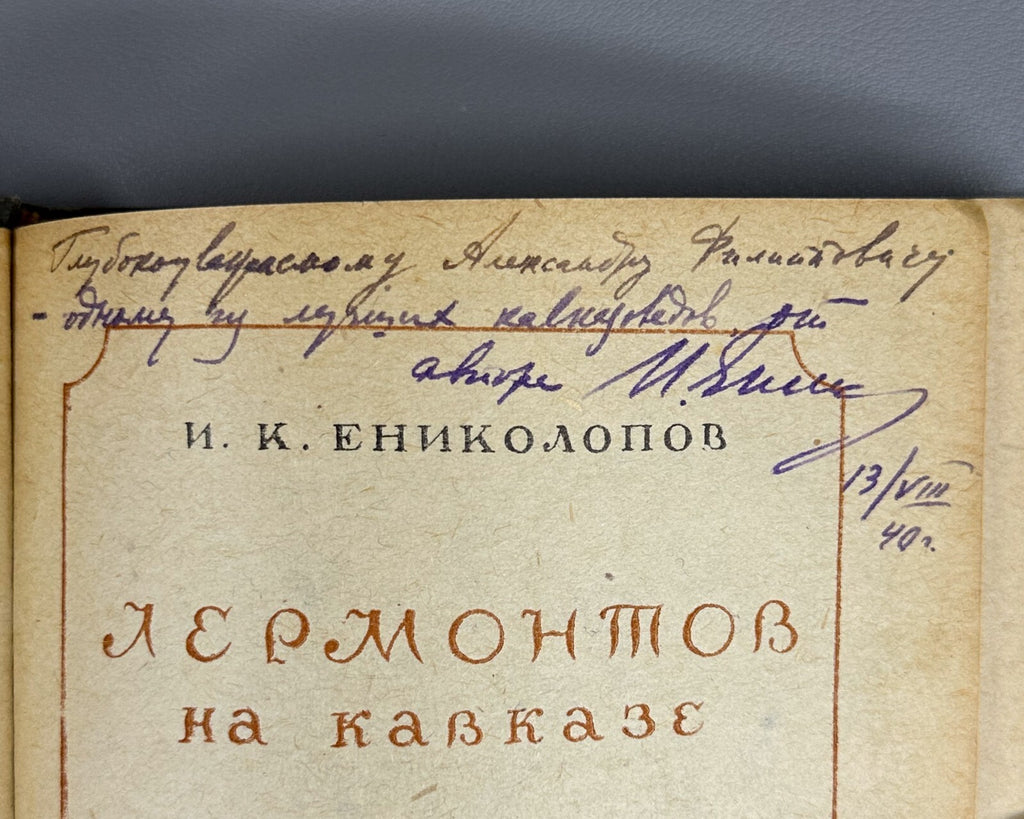 Глубокоуважаемому Александру Филипповичу
- одному из лучших кавказоведов от
автора И. Еник
И. К. ЕНИКОЛОПОВ
13/VIII
40 г.
ЛЕРМОНТОВ
на кавказе